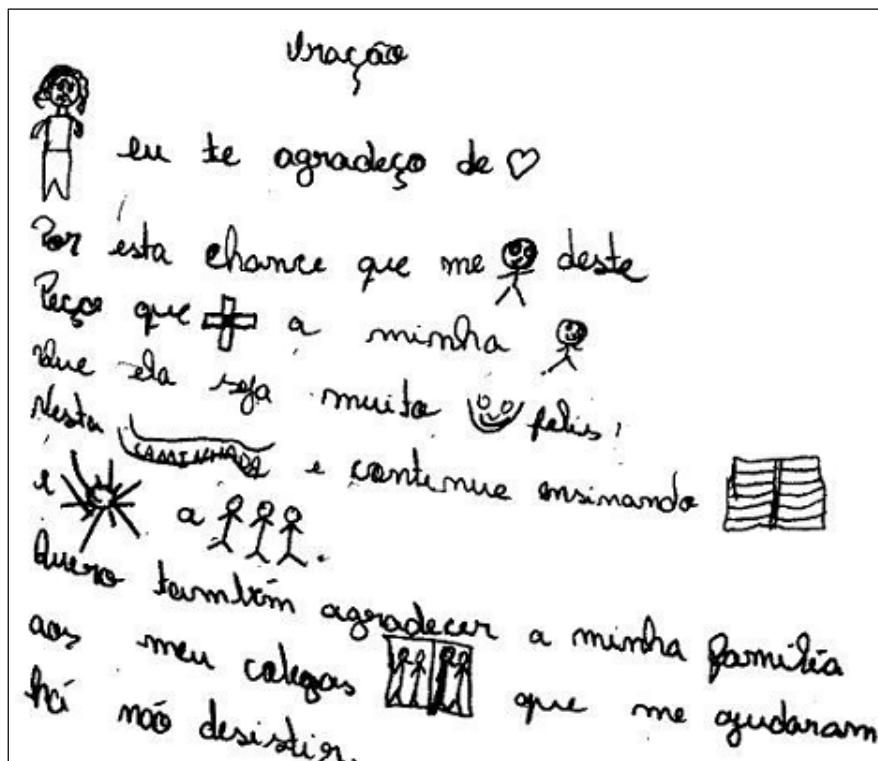 Oração
eu te agradeço de
Por esta chance que me deste
Peço que a minha
Que ela seja muito felis!
Nesta CAMINHADA e continue ensinando
e a
Quero também agradecer a minha família
aos meu colegas que me ajudaram
há não desistir.